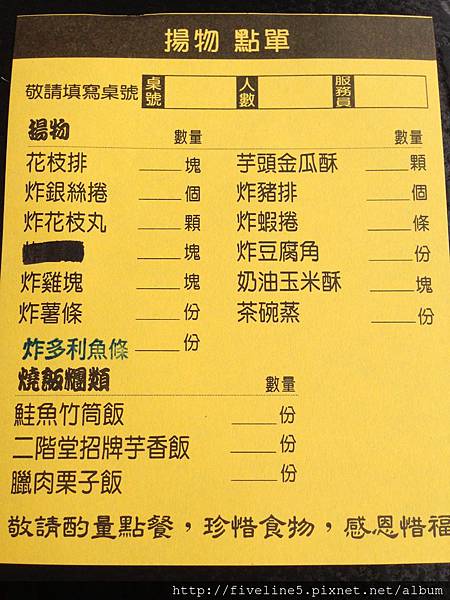 揚物 點單
敬請填寫桌號 桌號 人數 服務員
揚物 數量 數量
花枝排 塊 芋頭金瓜酥 顆
炸銀絲捲 個 炸豬排 個
炸花枝丸 顆 炸蝦捲 條
塊 炸豆腐角 份
炸雞塊 塊 奶油玉米酥 塊
炸薯條 份 茶碗蒸 份
炸多利魚條 份
燒飯爛類 數量
鮭魚竹筒飯 份
二階堂招牌芋香飯 份
臘肉栗子飯 份
敬請酌量點餐，珍惜食物，感恩惜福
http://fiveline5.pixnet.net/album